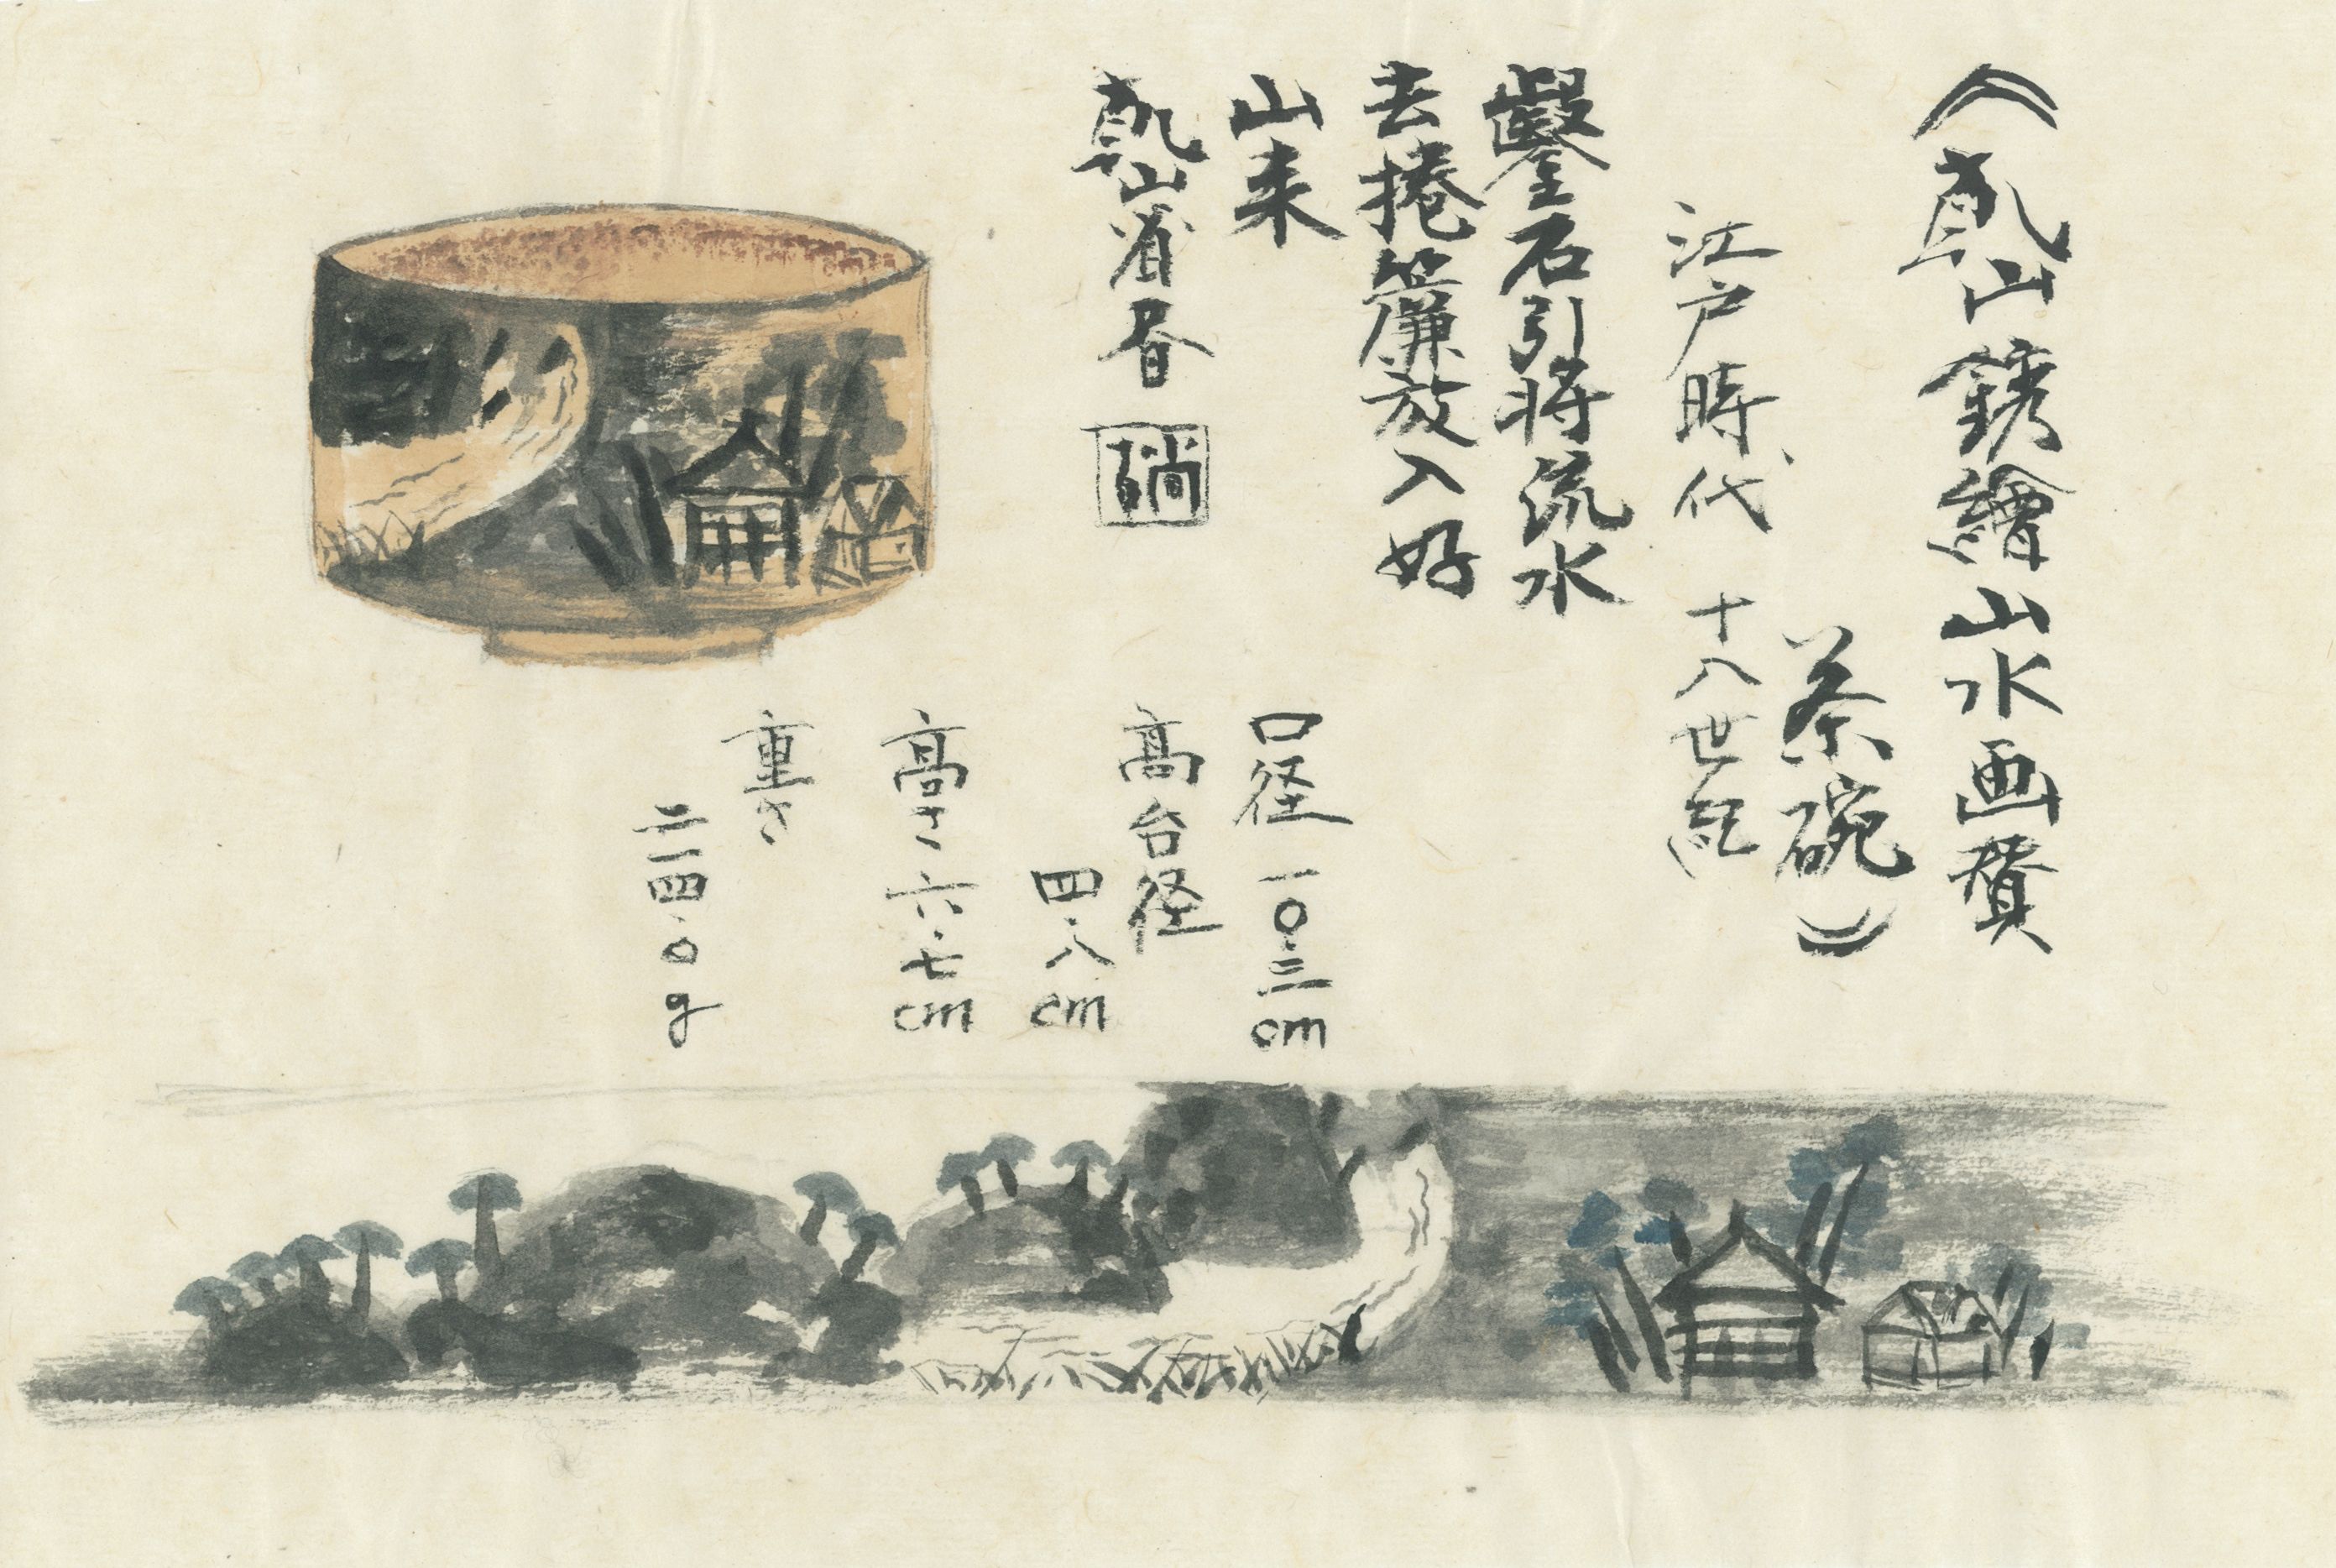 《乾山銹繪山水画賛
茶碗》
江戸時代 十八世紀
鑿石引将流水
去捲簾放入好
山来
乾山省
尚古
口径 一〇・三cm
高台径
四・八cm
高さ 六・七cm
重さ
二一四・〇g